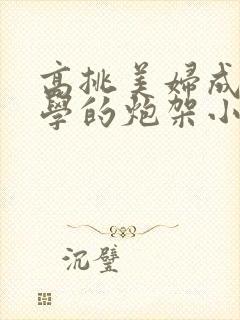 高挑美婦成
學的炮架小
沉璧